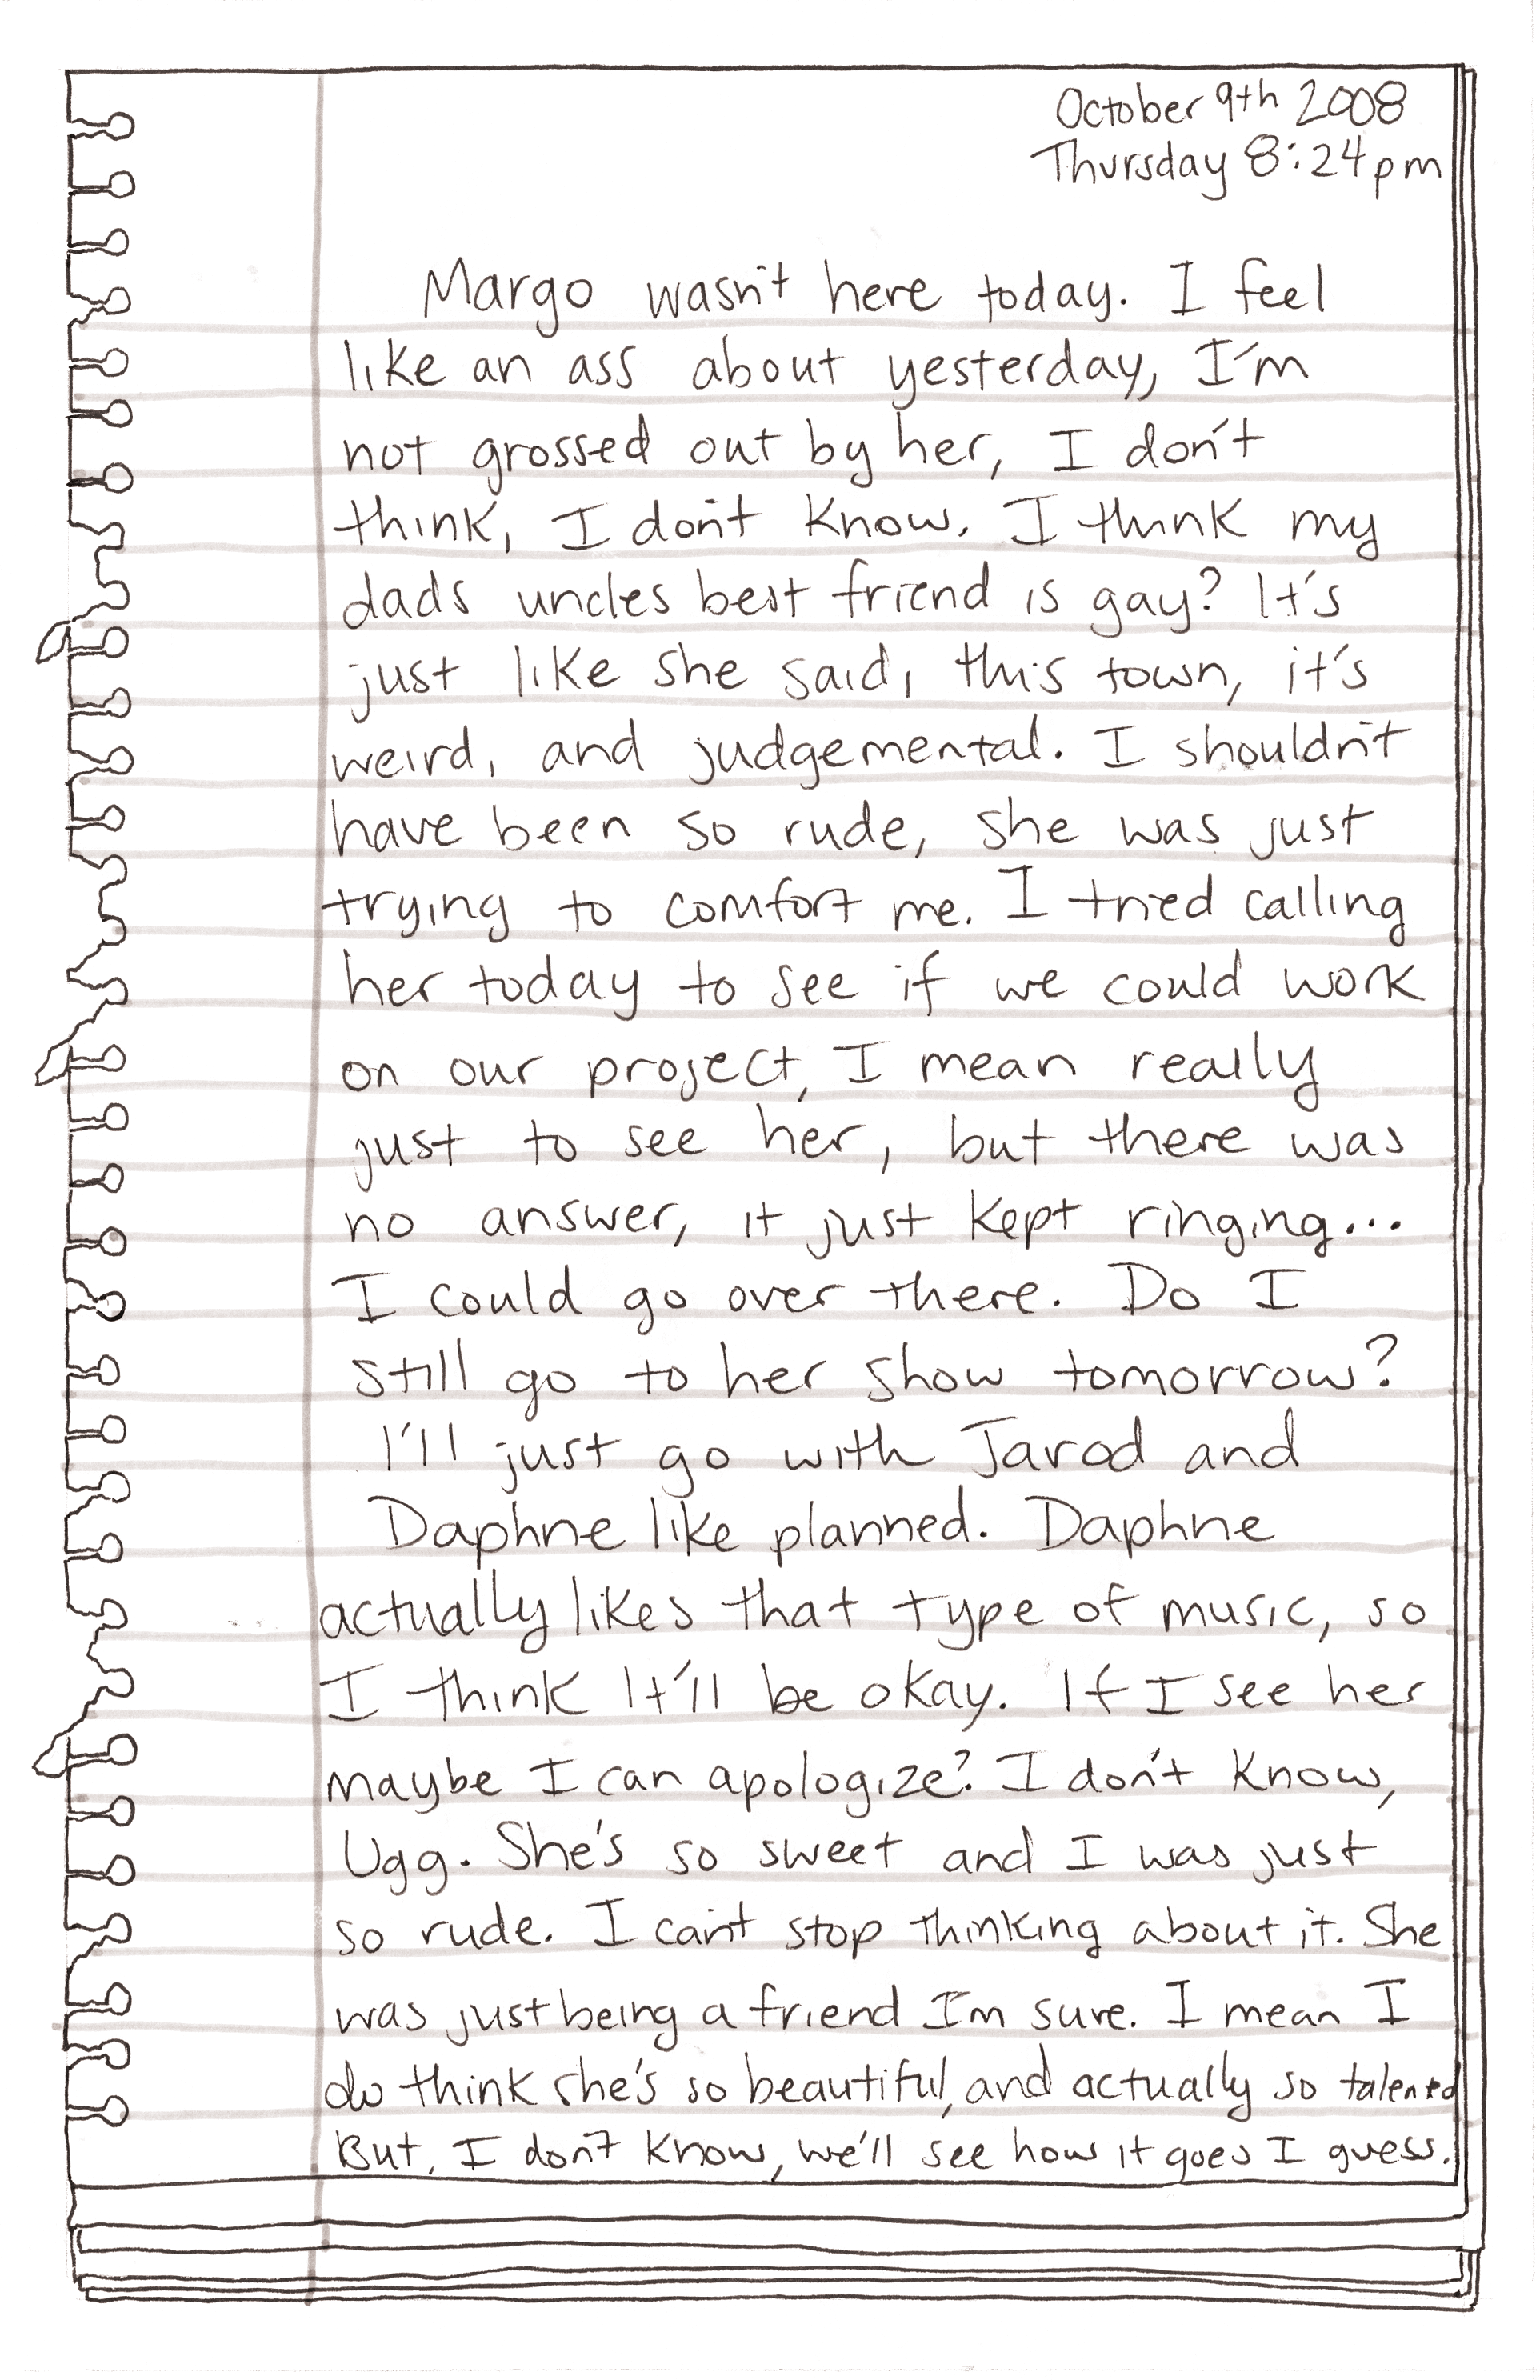 October 9th 2008
Thursday 8:24pm
Margo wasn't here today. I feel
like an ass about yesterday, I'm
not grossed out by her, I don't
think, I don't know. I think my
dads uncles best friend is gay? It's
just like she said, this town, it's
weird, and judgemental. I shouldn't
have been so rude, she was just
trying to comfort me. I tried calling
her today to see if we could work
on our project, I mean really
just to see her, but there was
no answer, it just kept ringing...
I could go over there. Do I
still go to her show tomorrow?
I'll just go with Jarod and
Daphne like planned. Daphne
actually likes that type of music, so
I think It'll be okay. If I see her
maybe I can apologize? I don't know,
Ugg. She's so sweet and I was just
so rude. I can't stop thinking about it. She
was just being a friend I'm sure. I mean I
do think she's so beautiful, and actually so talented
But, I don't know, we'll see how it goes I guess.